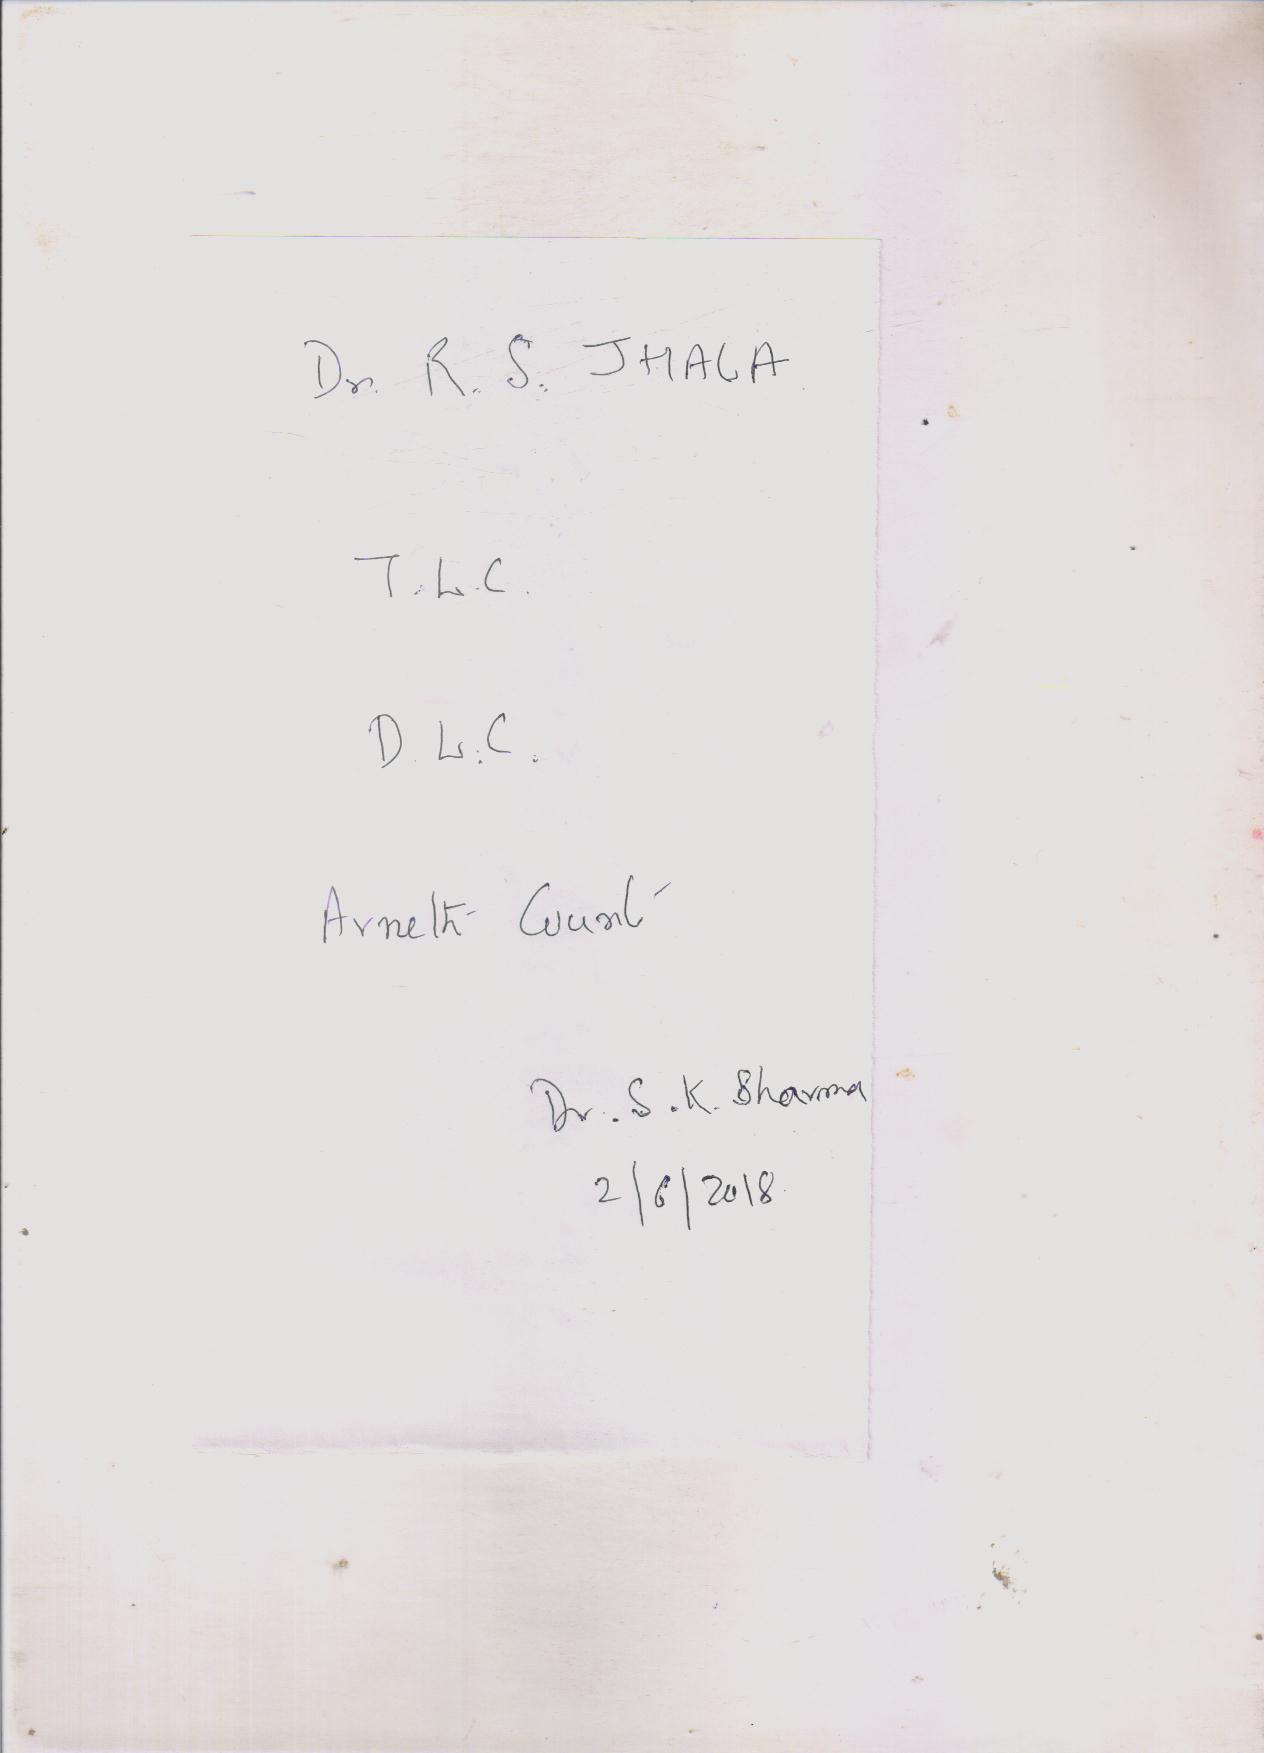 Dr. R. S. JHALA
T.L.C.
D.L.C.
Arneth Count
Dr. S.K. Sharma
2/6/2018